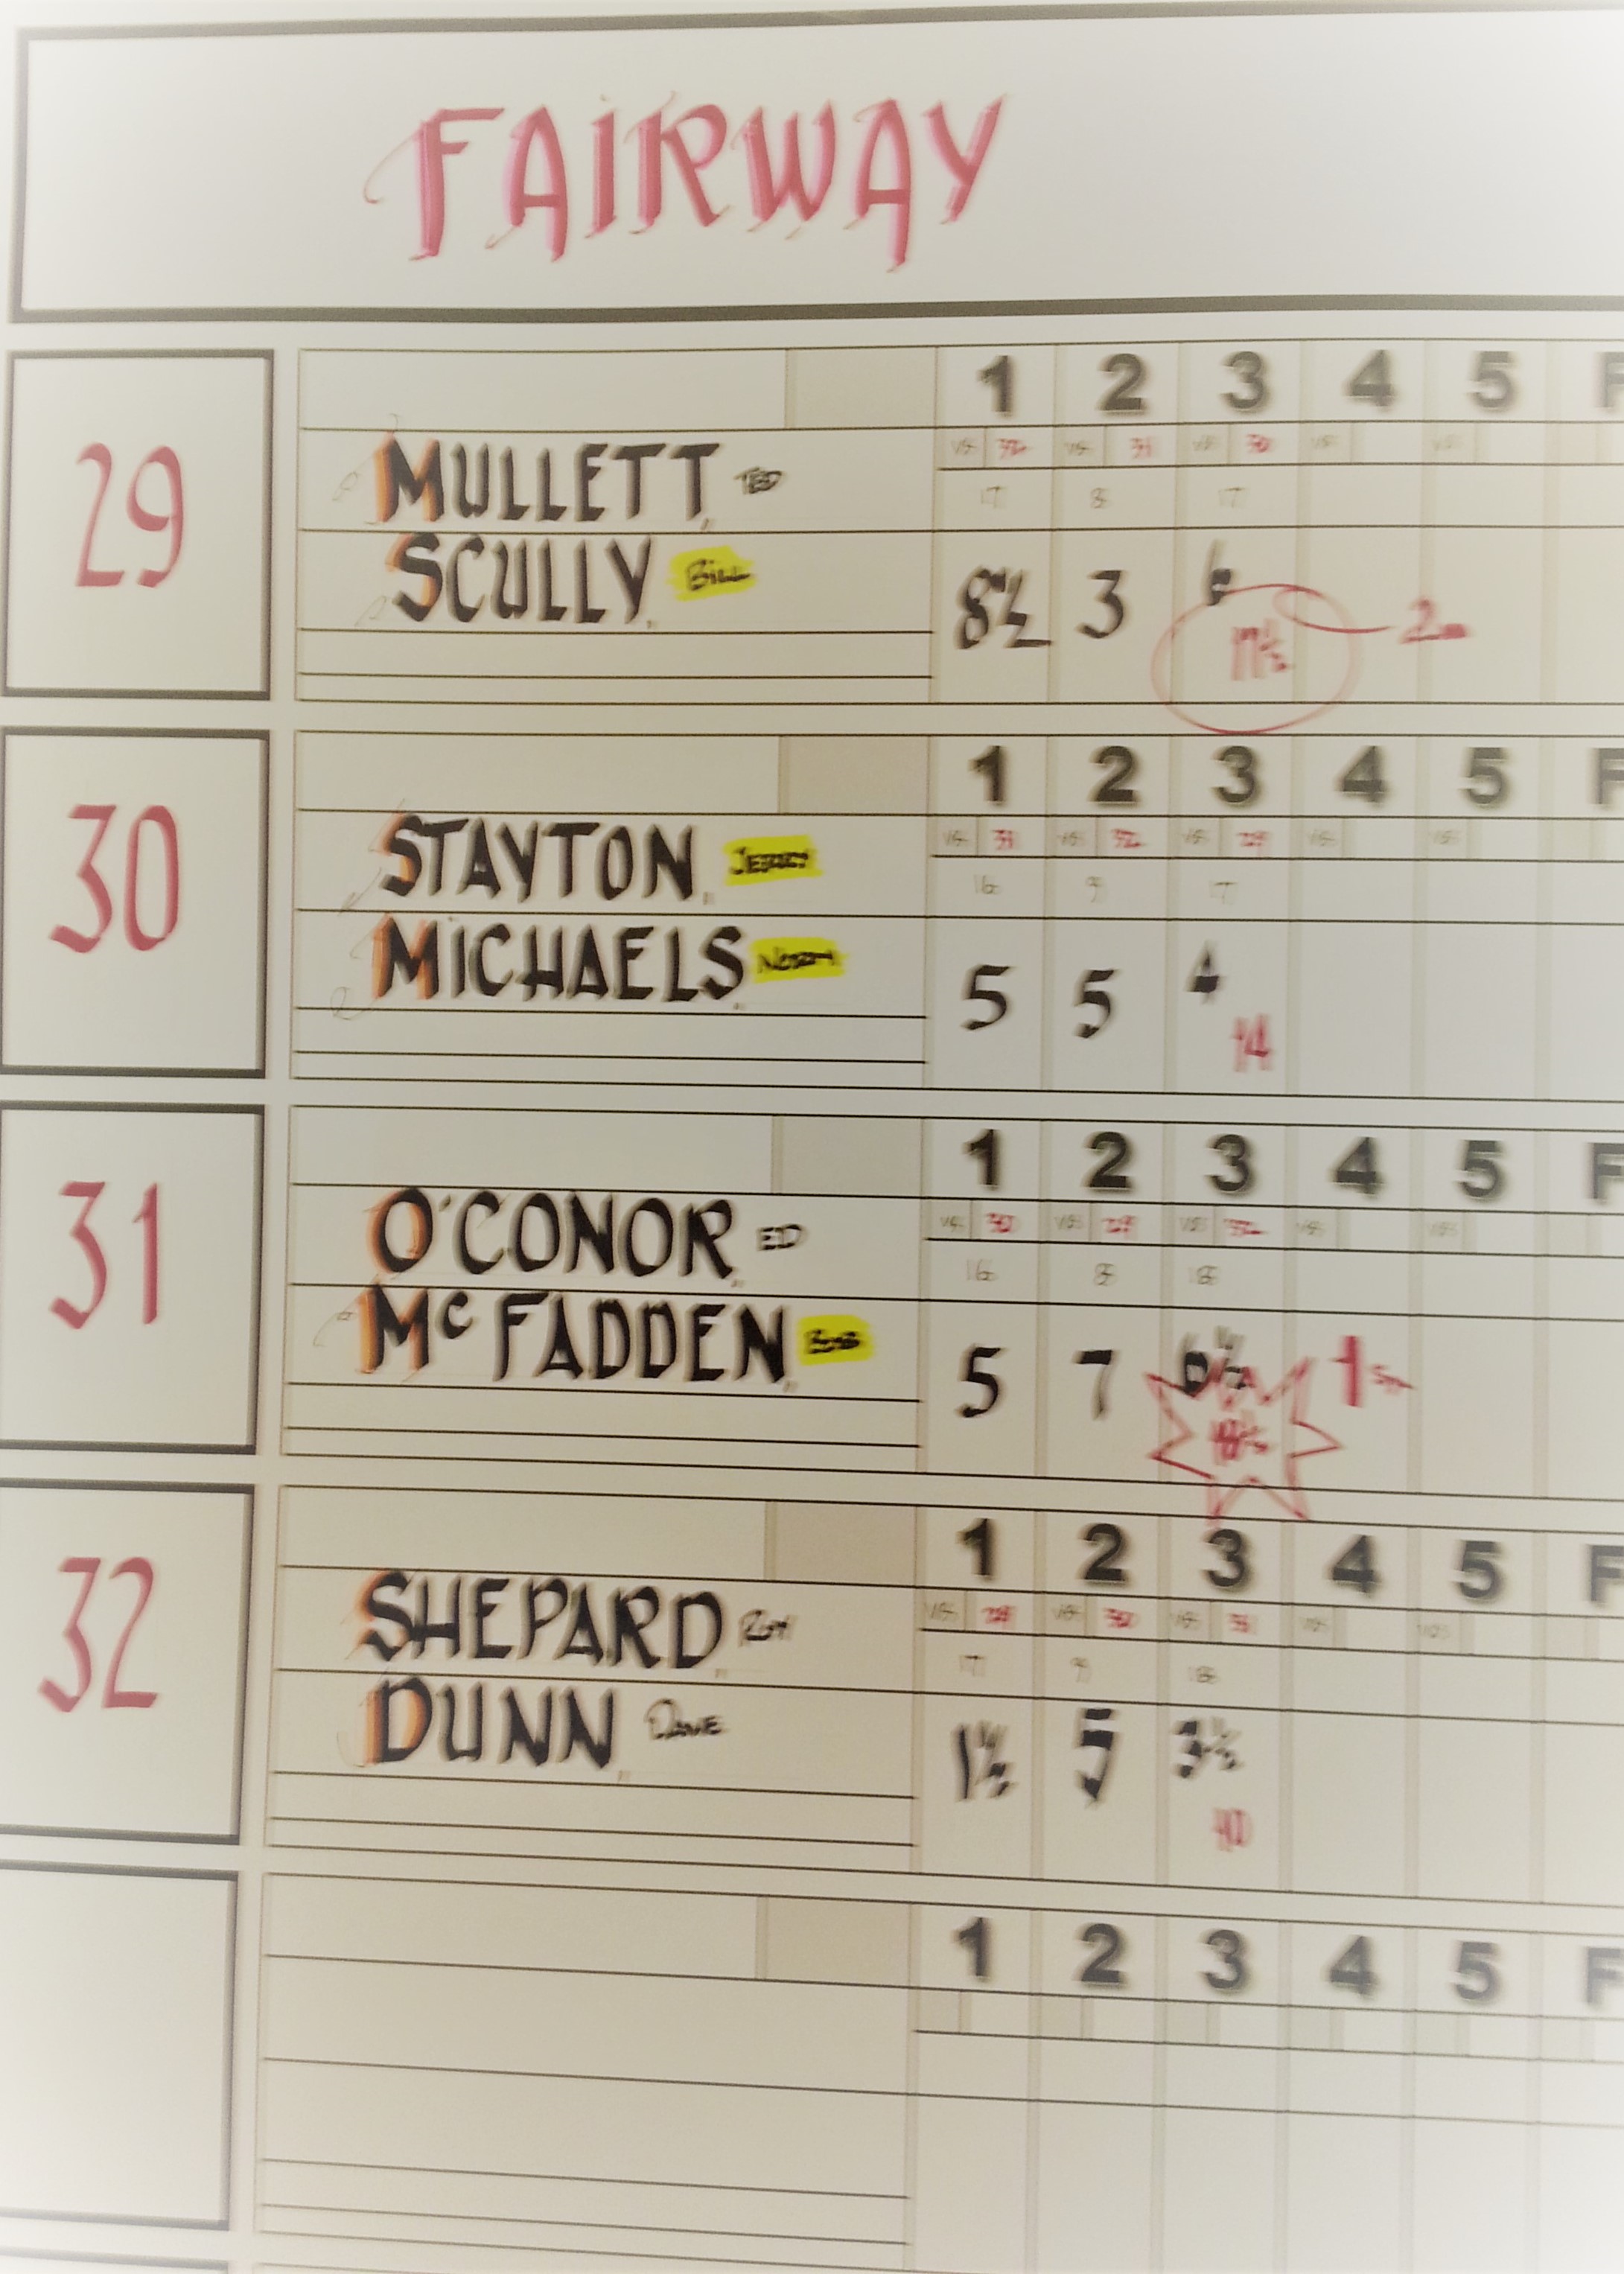 FAIRWAY
29
1 2 3 4 5 F
MULLETT TED
VS. 32 VS. 31 VS. 30 VS. VS.
17 8 17
SCULLY BILL
8½ 3 6
17½ 2
30
1 2 3 4 5 F
STAYTON JERRY
VS. 31 VS. 32 VS. 29 VS. VS.
16 9 17
MiCHAELS NORM
5 5 4
14
31
1 2 3 4 5 F
O'CONOR ED
VS. 30 VS. 29 VS. 32 VS. VS.
16 8 18
McFADDEN BOB
5 7 6½ 1ST
18½
32
1 2 3 4 5 F
SHEPARD ROY
VS. 29 VS. 30 VS. 31 VS. VS.
17 9 18
DUNN DAVE
1½ 5 3½
10
1 2 3 4 5 F